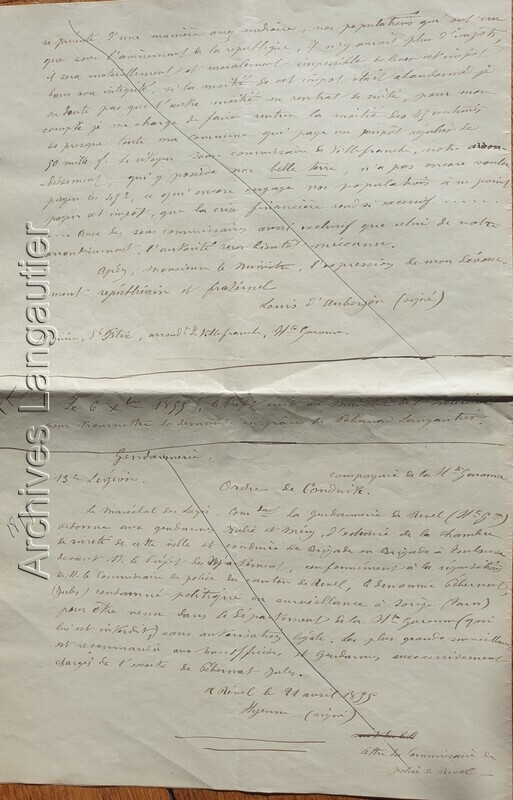 se présente d'une manière assez médiocre, nos populations qui ont cru
que sous l'avènement de la république, il n'y aurait plus d'impôts,
il sera matériellement et moralement impossible de lever cet impôt
dans son intégrité, si la moitié de cet impôt était abandonné je
ne doute pas que l'autre moitié ne rentrat de suite, pour mon
compte je me charge de faire rentrer la moitié des 45 centimes
de presque toute ma commune qui paye un impôt régulier de
50 mille f. le citoyen sous commissaire de Villefranche, notre
dissement, qui y possède une belle terre, n'a pas encore voulu
payer les 45c, ce qui encore engage nos populations à ne point
payer cet impôt, que la crise financière rend si excessif .....
... Avec des sous commissaires aussi que celui de notre
arrondissement, l'autorité sera bientôt méconnue.
Agréez, Monsieur le Ministre, l'expression de mon dévoue-
ment républicain et fraternel
Louis d'Auberjon (signé)
St Félix, arrondt de Villefranche, Hte Garonne.
Le 6 Xbre 1855,
pour transmettre la demande en grâce de Langautier.
Gendarmerie.
compagnie de la Hte Garonne
13e Légion
Ordre de Conduite.
Le maréchal des logis, Comdant la Gendarmerie de Revel (Hte Gne)
ordonne aux gendarmes Julié et d'extraire de la chambre
de sureté de cette ville et conduire de Brigade en Brigade à Toulouse
devant M. le Préfet du Département, conformément à la réquisition
de M. le Commissaire de police du canton de Revel, le dénommé
(Jules) condamné politique en surveillance à Sorèze (Tarn)
pour être venu dans le département de la Hte Garonne (qui
lui est interdit,) sans autorisation légale. La plus grande surveillance
est recommandée aux sousofficiers et Gendarmes successivement
chargés de l'escorte de Jules.
A Revel le 21 avril 1855
(signé)
Commissaire de
police de Revel